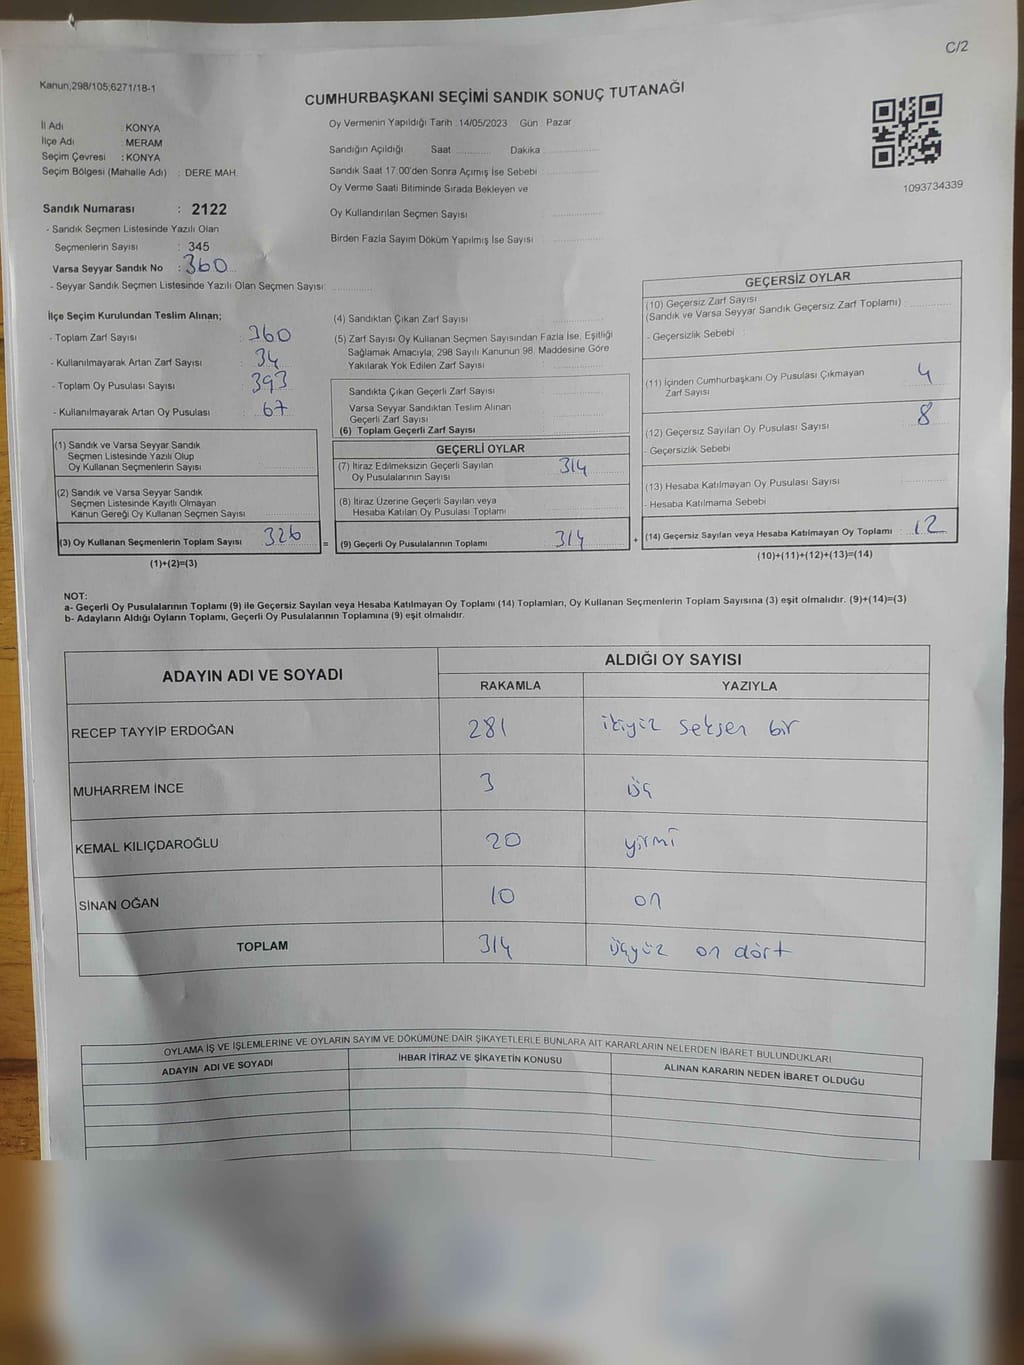 C/2
Kanun;298/105;6271/18-1
CUMHURBAŞKANI SEÇİMİ SANDIK SONUÇ TUTANAĞI
İl Adı : KONYA
İlçe Adı : MERAM
Seçim Çevresi : KONYA
Seçim Bölgesi (Mahalle Adı) : DERE MAH.
Oy Vermenin Yapıldığı Tarih :14/05/2023 Gün : Pazar
Sandığın Açıldığı Saat Dakika
Sandık Saat 17:00'den Sonra Açımış İse Sebebi
Oy Verme Saati Bitiminde Sırada Bekleyen ve
Oy Kullandırılan Seçmen Sayısı
Birden Fazla Sayım Döküm Yapılmış İse Sayısı
1093734339
Sandık Numarası : 2122
- Sandık Seçmen Listesinde Yazılı Olan
Seçmenlerin Sayısı : 345
Varsa Seyyar Sandık No : 360
- Seyyar Sandık Seçmen Listesinde Yazılı Olan Seçmen Sayısı:
İlçe Seçim Kurulundan Teslim Alınan;
- Toplam Zarf Sayısı : 360
- Kullanılmayarak Artan Zarf Sayısı : 34
- Toplam Oy Pusulası Sayısı : 393
- Kullanılmayarak Artan Oy Pusulası : 67
(1) Sandık ve Varsa Seyyar Sandık
Seçmen Listesinde Yazılı Olup
Oy Kullanan Seçmenlerin Sayısı
(2) Sandık ve Varsa Seyyar Sandık
Seçmen Listesinde Kayıtlı Olmayan
Kanun Gereği Oy Kullanan Seçmen Sayısı
(3) Oy Kullanan Seçmenlerin Toplam Sayısı 326 =
(1)+(2)=(3)
(4) Sandıktan Çıkan Zarf Sayısı
(5) Zarf Sayısı Oy Kullanan Seçmen Sayısından Fazla İse, Eşitliği
Sağlamak Amacıyla; 298 Sayılı Kanunun 98. Maddesine Göre
Yakılarak Yok Edilen Zarf Sayısı
Sandıkta Çıkan Geçerli Zarf Sayısı
Varsa Seyyar Sandıktan Teslim Alınan
Geçerli Zarf Sayısı
(6) Toplam Geçerli Zarf Sayısı
GEÇERLİ OYLAR
(7) İtiraz Edilmeksizin Geçerli Sayılan 314
Oy Pusulalarının Sayısı
(8) İtiraz Üzerine Geçerli Sayılan veya
Hesaba Katılan Oy Pusulası Toplamı
(9) Geçerli Oy Pusulalarının Toplamı 314 +
GEÇERSİZ OYLAR
(10) Geçersiz Zarf Sayısı
(Sandık ve Varsa Seyyar Sandık Geçersiz Zarf Toplamı) :
- Geçersizlik Sebebi :
(11) İçinden Cumhurbaşkanı Oy Pusulası Çıkmayan 4
Zarf Sayısı
(12) Geçersiz Sayılan Oy Pusulası Sayısı 8
- Geçersizlik Sebebi
(13) Hesaba Katılmayan Oy Pusulası Sayısı
- Hesaba Katılmama Sebebi
(14) Geçersiz Sayılan veya Hesaba Katılmayan Oy Toplamı : 12
(10)+(11)+(12)+(13)=(14)
NOT:
a- Geçerli Oy Pusulalarının Toplamı (9) ile Geçersiz Sayılan veya Hesaba Katılmayan Oy Toplamı (14) Toplamları, Oy Kullanan Seçmenlerin Toplam Sayısına (3) eşit olmalıdır. (9)+(14)=(3)
b- Adayların Aldığı Oyların Toplamı, Geçerli Oy Pusulalarının Toplamına (9) eşit olmalıdır.
ADAYIN ADI VE SOYADI ALDIĞI OY SAYISI
RAKAMLA YAZIYLA
RECEP TAYYİP ERDOĞAN 281 ikiyüz seksen bir
MUHARREM İNCE 3 üç
KEMAL KILIÇDAROĞLU 20 yirmi
SİNAN OĞAN 10 on
TOPLAM 314 üçyüz on dört
OYLAMA İŞ VE İŞLEMLERİNE VE OYLARIN SAYIM VE DÖKÜMÜNE DAİR ŞİKAYETLERLE BUNLARA AİT KARARLARIN NELERDEN İBARET BULUNDUKLARI
ADAYIN ADI VE SOYADI İHBAR İTİRAZ VE ŞİKAYETİN KONUSU ALINAN KARARIN NEDEN İBARET OLDUĞU